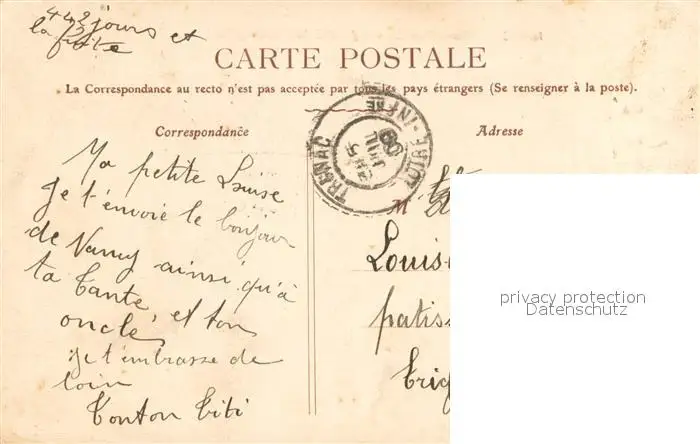 442 jours et
la fuite
CARTE POSTALE
La Correspondance au recto n'est pas acceptée par tous les pays étrangers (Se renseigner à la poste).
Correspondance
Adresse
TRIGNAC
INFRE
Ma petite Louise
Je t'envoie le bonjour
de Nancy ainsi qu'à
ta tante, et ton
oncle
Je t'embrasse de
loin
Tonton Titi
M
Louis
patiss
Trig
privacy protection
Datenschutz